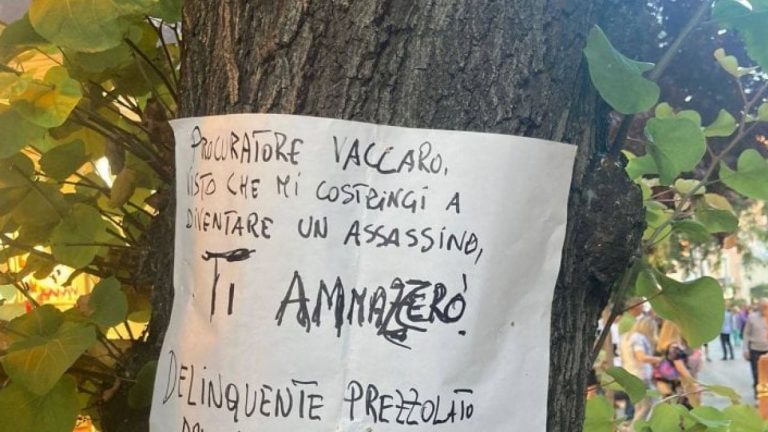 PROCURATORE VACCARO,
VISTO CHE MI COSTRINGI A
DIVENTARE UN ASSASSINO,
TI AMMAZZERÒ
DELINQUENTE PREZZOLATO